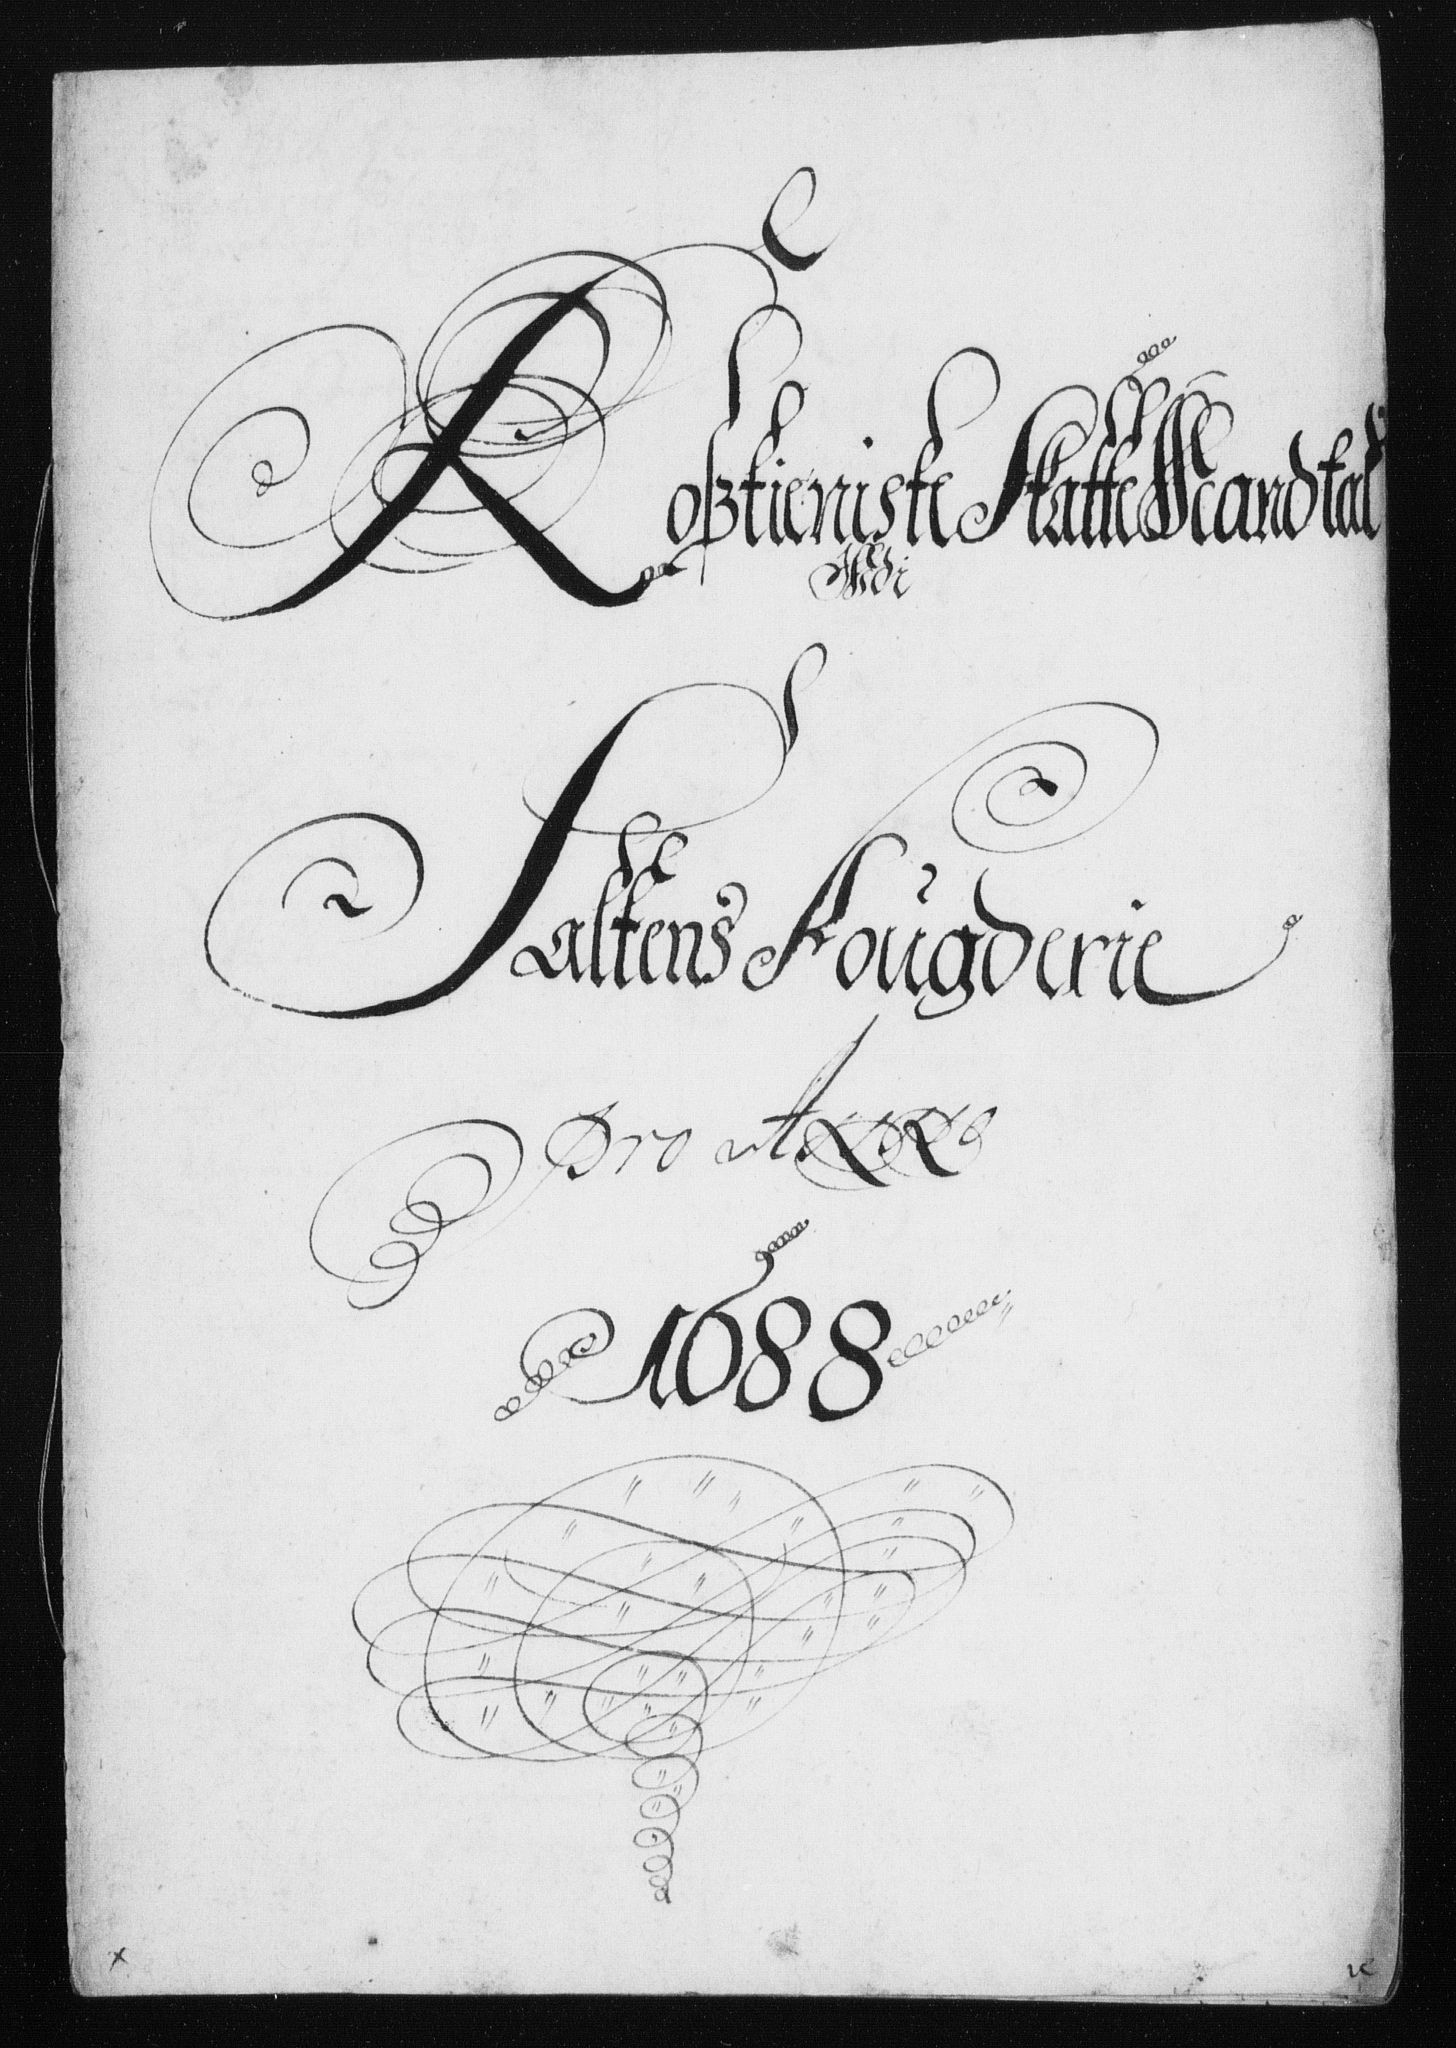 Roßtieniste Skatte Mandtal
Udi
Saltens Fougderie
Pro Anno
1688